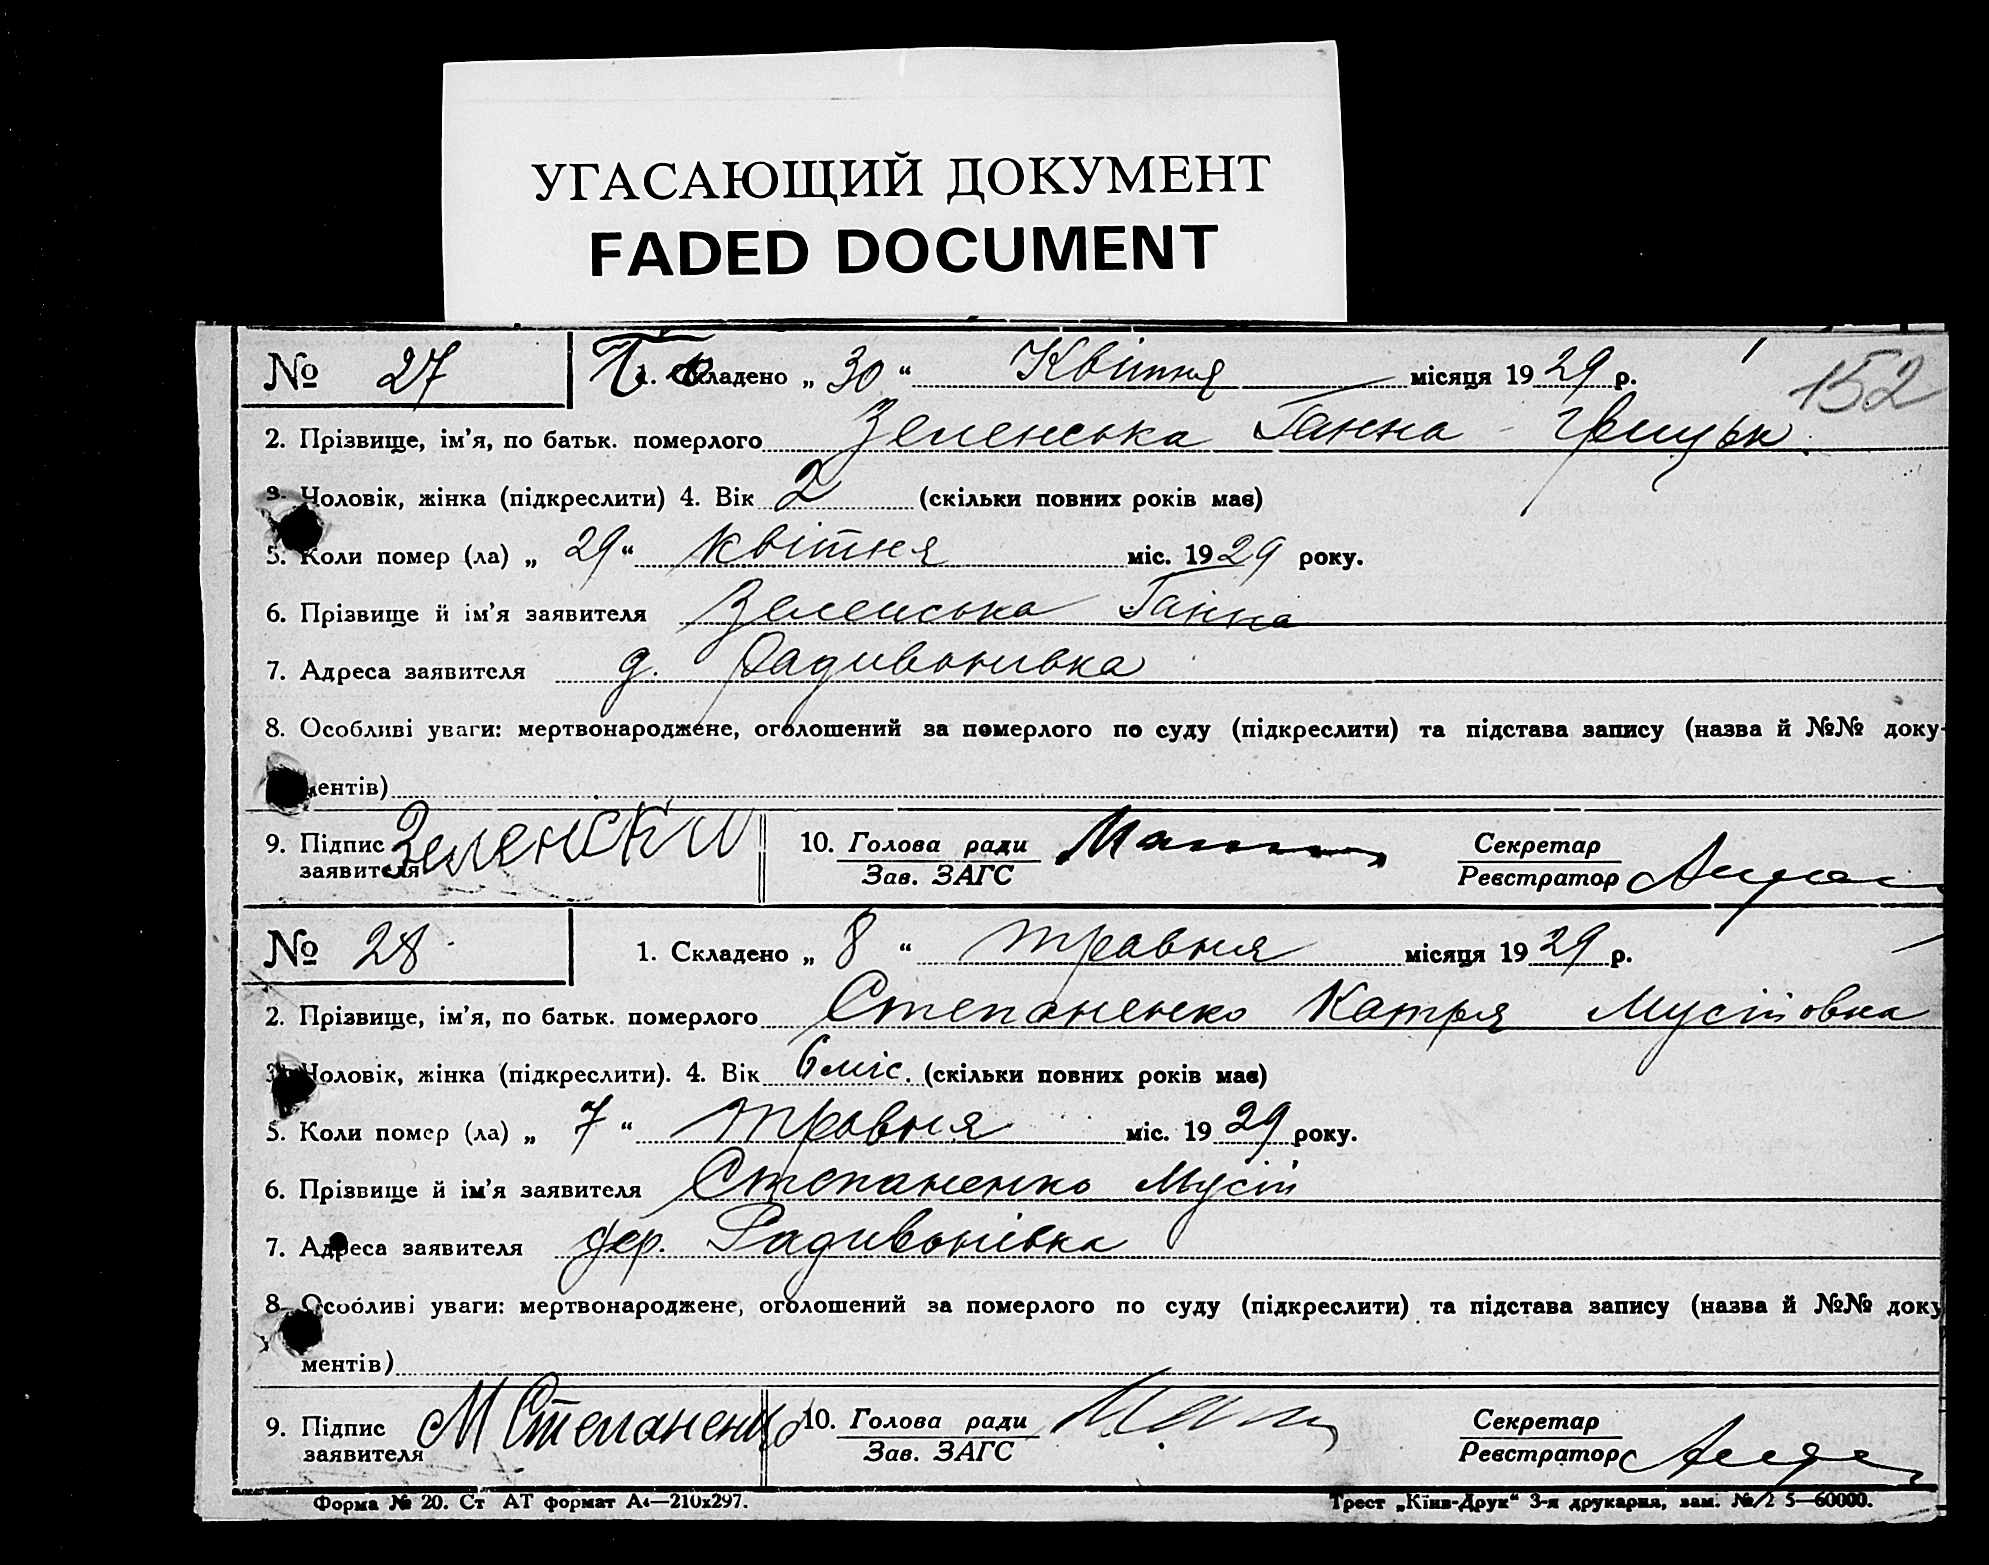 УГАСАЮЩИЙ ДОКУМЕНТ
FADED DOCUMENT
152
№ 27 1. Складено „ 30 “ Квітня місяця 1929 р.
2. Прізвище, ім’я, по батьк. померлого Зеленська Ганна
3. Чоловік, жінка (підкреслити) 4. Вік 2 (скільки повних років має)
5. Коли помер (ла) „ 29 “ квітня міс. 1929 року.
6. Прізвище й ім’я заявителя Зеленська Ганна
7. Адреса заявителя д. Радивонивка
8. Особливі уваги: мертвонароджене, оголошений за померлого по суду (підкреслити) та підстава запису (назва й №№ доку-
ментів)
9. Підпис заявителя Зеленский 10. Голова ради Зав. ЗАГС Секретар Реєстратор
№ 28 1. Складено „ 8 “ травня місяця 1929 р.
2. Прізвище, ім’я, по батьк. померлого Степаненко Катря Мусіївна
3. Чоловік, жінка (підкреслити). 4. Вік 6 міс. (скільки повних років має)
5. Коли помер (ла) „ 7 “ травня міс. 1929 року.
6. Прізвище й ім’я заявителя Степаненко Мусій
7. Адреса заявителя дер. Радивонівка
8. Особливі уваги: мертвонароджене, оголошений за померлого по суду (підкреслити) та підстава запису (назва й №№ доку
ментів)
9. Підпис заявителя М Степаненко 10. Голова ради Зав. ЗАГС Секретар Реєстратор
Форма № 20. Ст АТ формат А₄—210x297. Трест „Київ-Друк“ 3-я друкарня, зам. № 5—60000.